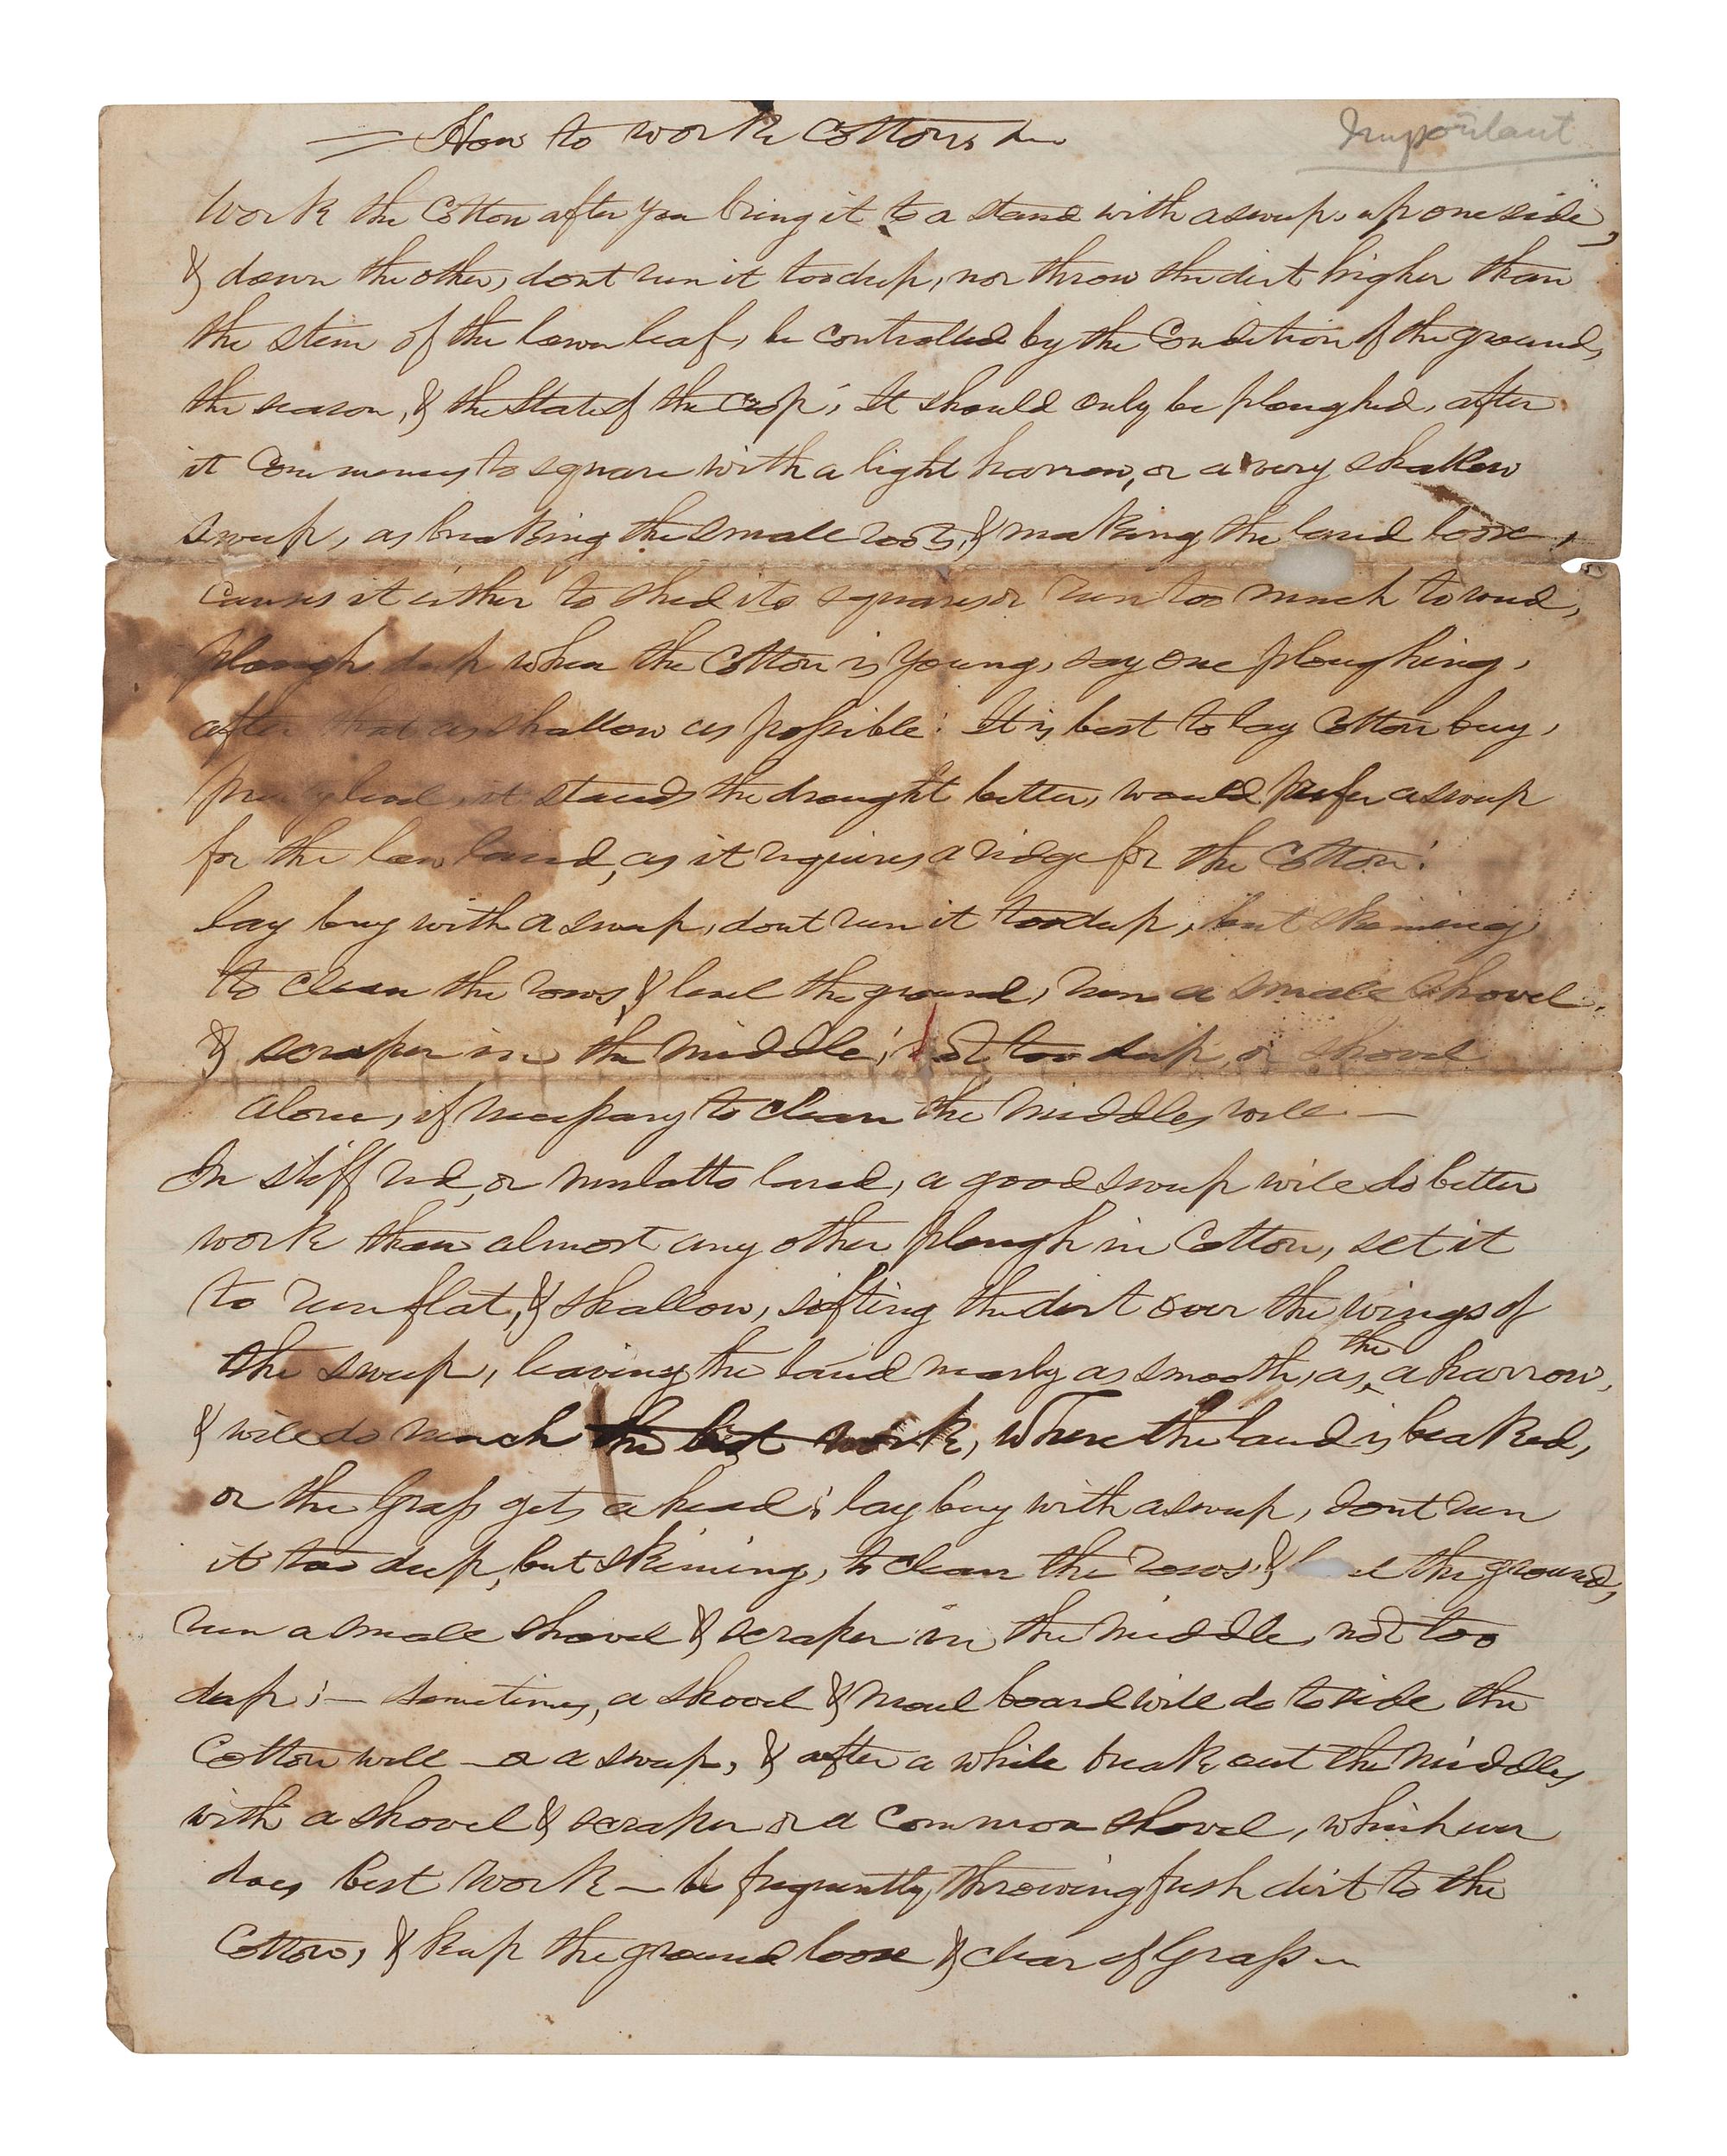 How to work Cotton
Important
Work the Cotton after you bring it to a stand with a sweep, up one side,
& down the other, dont run it too deep, nor throw the dirt higher than
the stem of the lower leaf, be controlled by the Condition of the ground,
the season, & the State of the crop; It should only be ploughed, after
it Commences to square with a light harrow, or a very shallow
sweep, as breaking the small roots, & making the land loose,
causes it either to shed its squares or run too much to weed,
Plough deep when the Cotton is young, say one ploughing,
after that as shallow as possible: It is best to lay Cotton buy,
pretty level, it stands the drought better, would prefer a sweep
for the low land, as it requires a ridge for the Cotton:
lay buy with a sweep, dont run it too deep, but skiming
to clean the rows, & level the ground, run a small shovel,
& scraper in the middle; not too deep, or shovel
alone, if necessary to clean the middles well —
In stiff red, or mulatto land, a good sweep will do better
work than almost any other plough in Cotton, set it
to run flat, & shallow, sifting the dirt over the wings of
the sweep, leaving the land nearly as smooth, as the a harrow,
& will do much the best work, where the land is beaked,
or the Grass gets a head; lay buy with a sweep, dont run
it too deep, but skiming, to clean the rows, & the ground,
run a small shovel & scraper in the middle, not too
deep; — sometimes, a shovel & moul board will do to side the
Cotton well — or a sweep, & after a while break out the middles
with a shovel & scraper or a common shovel, which ever
does best work — be frequently, throwing fresh dirt to the
Cotton, & keep the ground loose & clear of Grass —